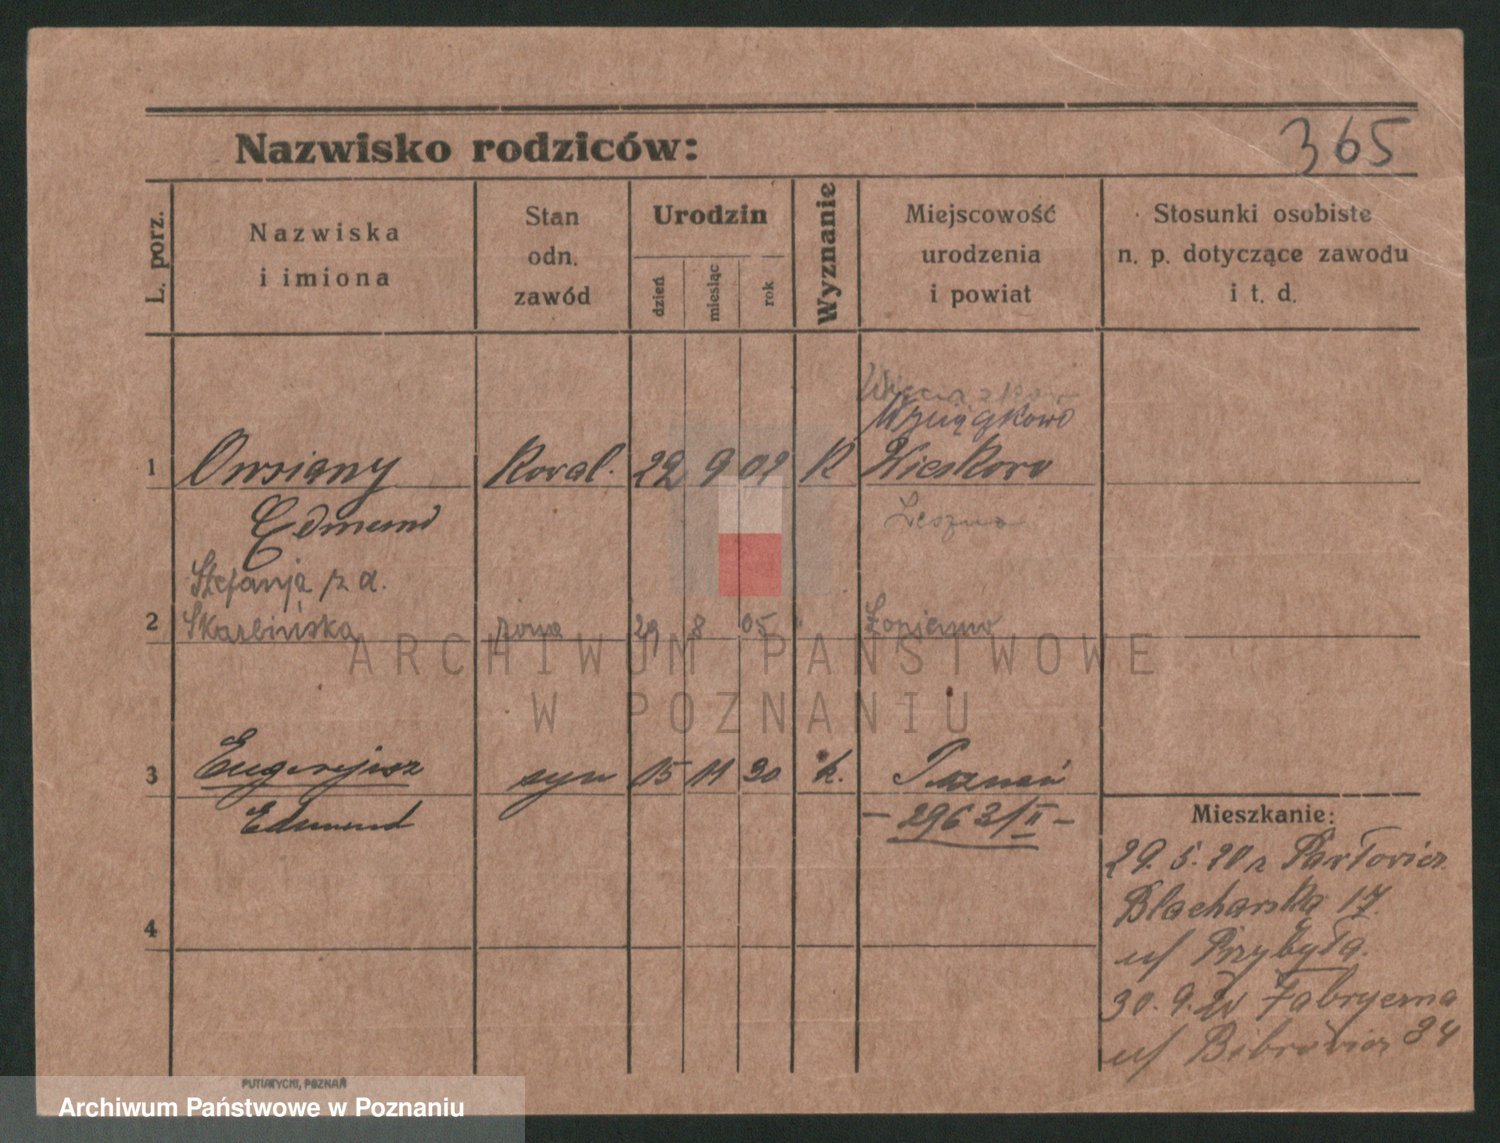 Nazwisko rodziców:
365
L. porz.
Nazwiska
i imiona
Stan
odn.
zawód
Urodzin
dzień
miesiąc
rok
Wyznanie
Miejscowość
urodzenia
i powiat
Stosunki osobiste
n. p. dotyczące zawodu
i t. d.
1
Owsiany
Edmund
Koval.
22
9
02
K
Leszno
Stefanja z d.
2
Skarbińska
żona
29
8
05
"
3
Eugenjusz
Edmund
syn
15
11
30
k.
Poznań
- 2963/II -
4
Mieszkanie:
29. 5.
Blacharska 17.
u/ Przybyła.
30. 9. Fabryczna
34
u/
PUTIATYCKI, POZNAŃ
ARCHIWUM PAŃSTWOWE
W POZNANIU
Archiwum Państwowe w Poznaniu